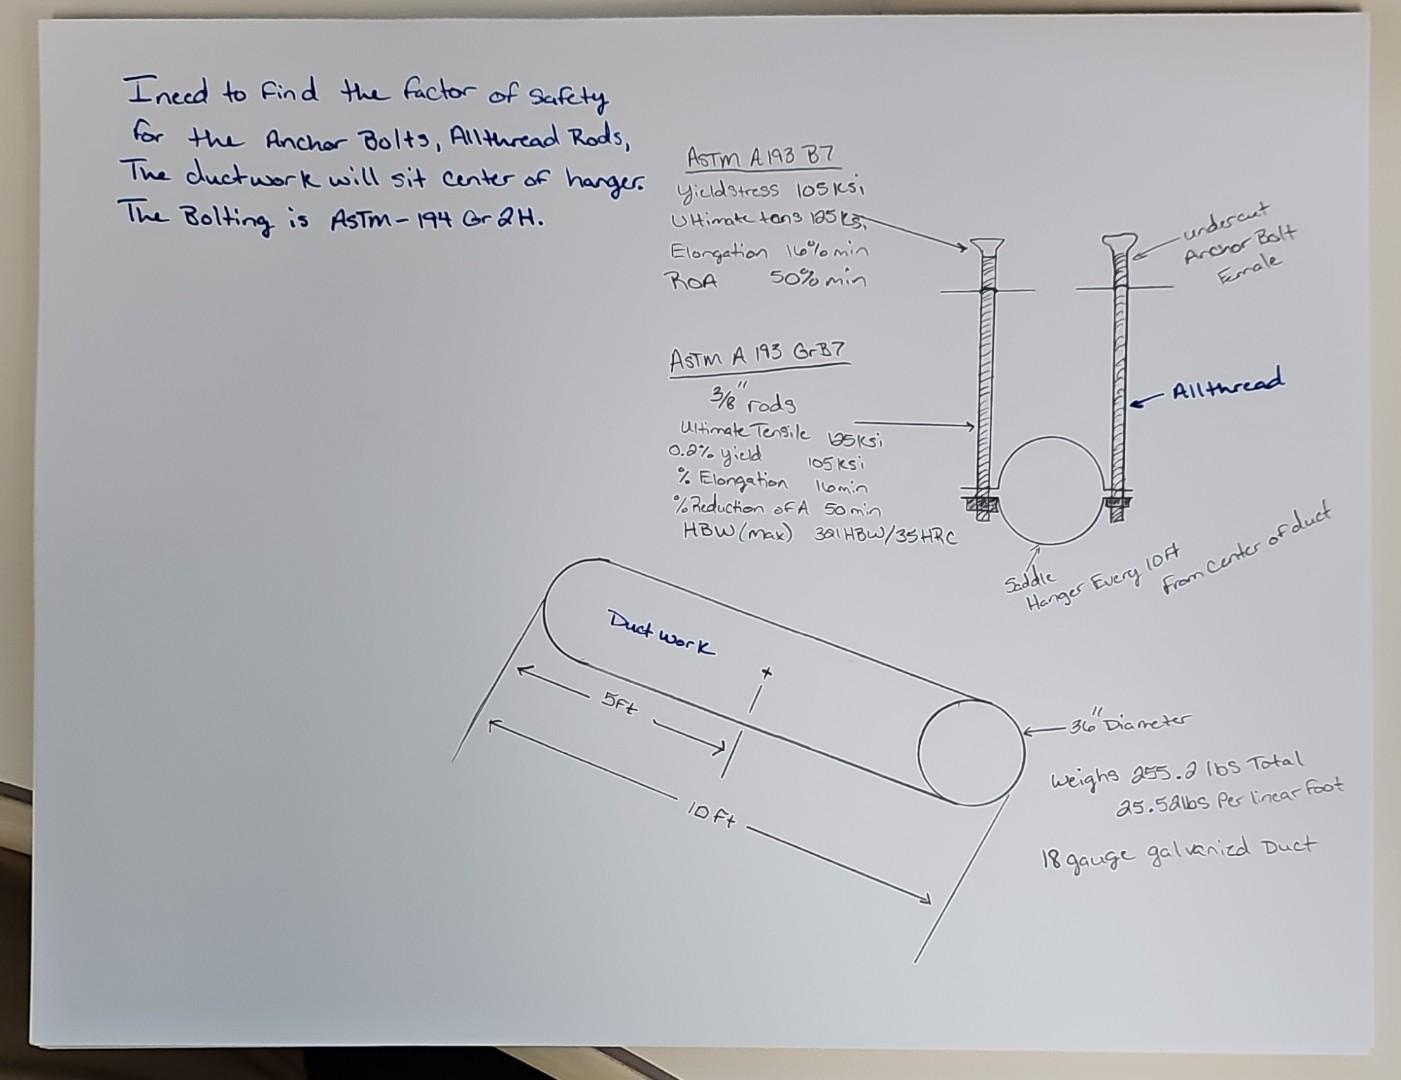 I need to find the factor of safety
for the Anchor Bolts, Allthread Rods,
The ductwork will sit center of hanger.
The Bolting is ASTM-194 Gr 2H.
ASTM A193 B7
Yield stress 105 Ksi
Ultimate tens 125 Ksi
Elongation 16% min
ROA 50% min
undercut
Anchor Bolt
Female
ASTM A 193 Gr B7
3/8" rods
Ultimate Tensile 125 Ksi
0.2% yield 105 Ksi
% Elongation 16 min
% Reduction of A 50 min
HBW (max) 321 HBW/35 HRC
Allthread
Saddle
Hanger Every 10 Ft
From Center of duct
Duct work
5 Ft
10 Ft
36" Diameter
Weighs 255.2 lbs Total
25.52 lbs Per linear Foot
18 gauge galvanizd Duct